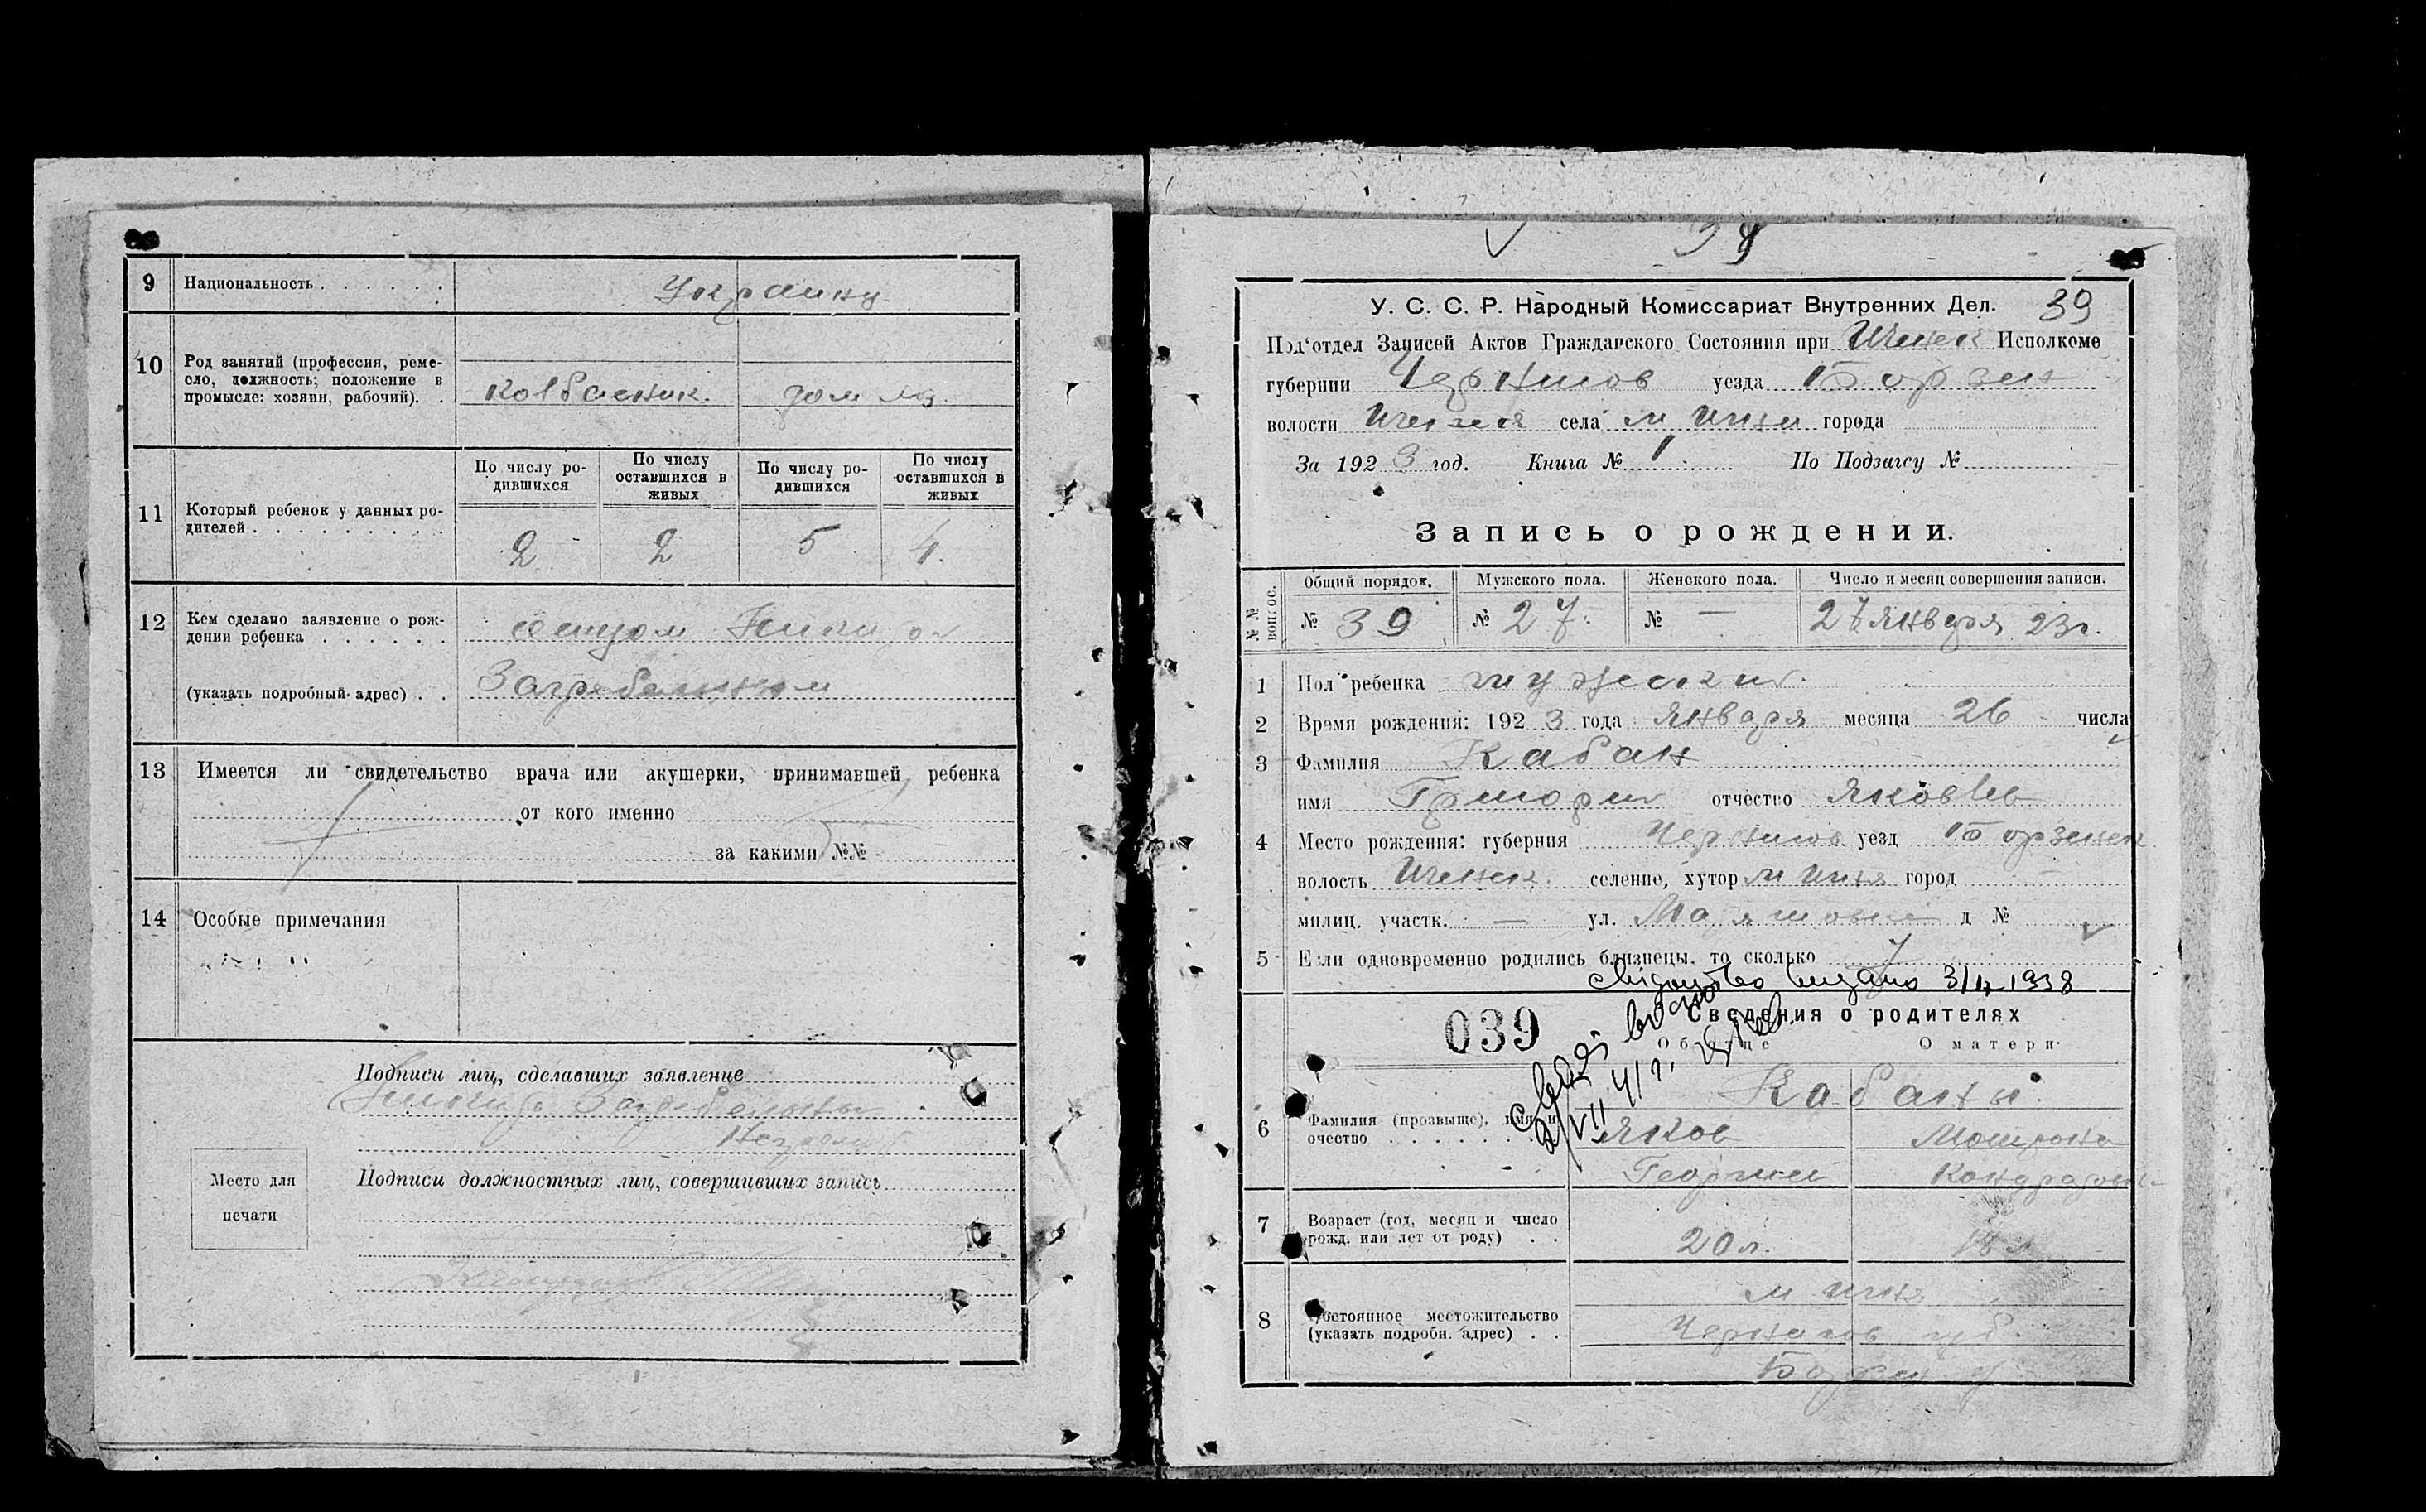 9 Национальность . . . . . . Украинц
10 Род занятий (профессия, реме-
сло, должность; положение в
промысле: хозяин, рабочий). . Колбасник. дом хоз.
11 Который ребенок у данных ро-
дителей . . . . . . . . .
По числу ро-
дившихся
По числу
оставшихся в
живых
По числу ро-
дившихся
По числу
оставшихся в
живых
2 2 5 4.
12 Кем сделано заявление о рож-
дении ребенка . . . . . .
(указать подробный адрес) . .
13 Имеется ли свидетельство врача или акушерки, принимавшей ребенка
от кого именно
за какими №№
14 Особые примечания
Подписи лиц, сделавших заявление
Место для
печати
Подписи должностных лиц, совершивших запись
39
У. С. С. Р. Народный Комиссариат Внутренних Дел.
Под‘отдел Записей Актов Гражданского Состояния при Иченск Исполкоме
губернии Чернигов уезда Борзен
волости Ичен села м Ичня города
За 1923 год. Книга № 1 По Подзагсу №
Запись о рождении.
№№ вопрос.
Общий порядок. Мужского пола. Женского пола. Число и месяц совершения записи.
№ 39 № 27. № — 27 января 23г.
1 Пол ребенка мужский.
2 Время рождения: 1923 года января месяца 26 числа
3 Фамилия Кабан
имя Григорий отчество Яковлев
4 Место рождения: губерния Чернигов уезд Борзенск
волость Иченск селение, хутор м Ичня город
милиц. участк. — ул. д №
5 Если одновременно родились близнецы, то сколько
видано 3/ 1938
039 Сведения о родителях
Об отце О матери
6 Фамилия (прозвище), имя и
очество . . . . . .
Кабаны.
Яков Мотрона
Георгиев Кондратов
7 Возраст (год, месяц и число
рожд. или лет от роду) . . 20 л. 18 л
8 Постоянное местожительство
(указать подробн. адрес) . .
м Ичня
Чернигов губ
Борзен у